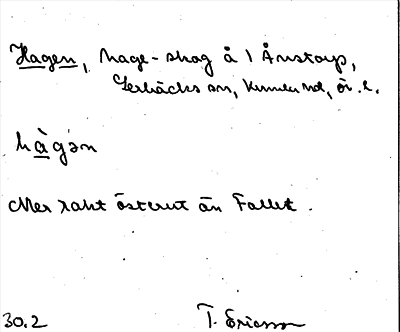 Hagen, hage-skog å 1 Ånstorp,
Lerbäcks sn, Kumla hd, ör. l.
hàgən
Mer rakt österut än Fallet.
30.2 T. Ericsson